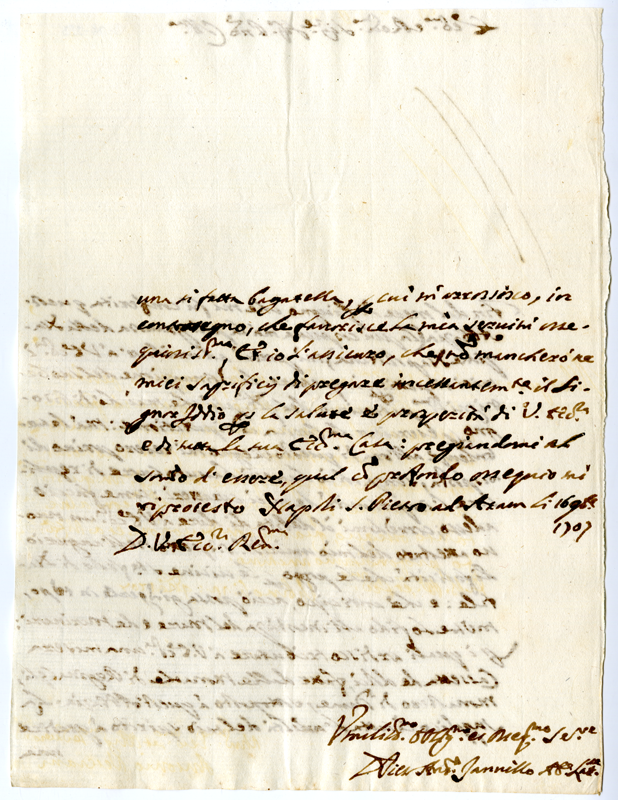 una si fatta bagatella, p cui m'arrossisco, in
contrasegno, che favorisce la mia servitù osse-
quiosis.ma Et io l'assicuro, che nō mancherò ne
miei sagrificij di pregare incessantem.te il Si-
gnor Iddio p la salute e prosperità di V. Ecc.a
e di tutta la sua Ecc.ma Casa: pregiandomi al
sommo d'essere, qual cō profondo ossequio mi
riprotesto Napoli S. Pietro ad Aram li 16
1707
D. V. Ecc. Reu.ma
Umiliss.mo et Se.re
D. Jannillo